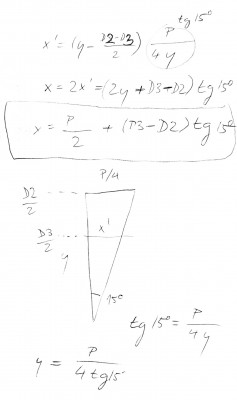 tg 15°
x' = (y - D2-D3/2) P/4y
x = 2x' = (2y + D3 - D2) tg 15°
x = P/2 + (D3 - D2) tg 15°
P/4
D2/2
D3/2
x'
y
15°
tg 15° = P/4y
y = P/4 tg 15